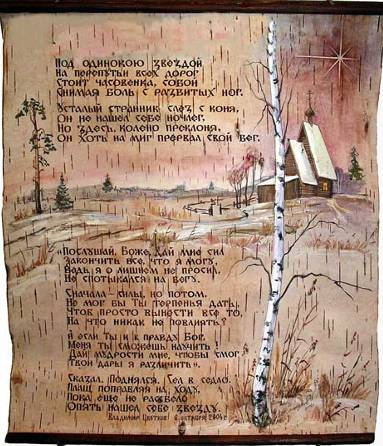 Под одинокою звездой
На перепутьи всех дорог
Стоит часовенка, собой
Снимая боль с разбитых ног.
Усталый странник слез с коня,
Он не нашел себе ночлег,
Но здесь, колено преклоня,
Он хоть на миг прервал свой бег.
«Послушай, Боже, дай мне сил
Закончить все, что я могу,
Ведь я о лишнем не просил,
Не спотыкался на бегу.
Сначала – силы, но потом,
Не мог бы ты терпенья дать,
Чтоб просто вынести все то,
На что никак не повлиять?
И если ты и вправду Бог,
Меня ты сможешь научить
Дай мудрости мне, чтобы смог
Твои дары я различить».
Сказал. Поднялся. Сел в седло.
Плащ поправляя на ходу,
Пока еще не рассвело
Опять нашел себе звезду.
Владимир Цветков 6 октября 2004г